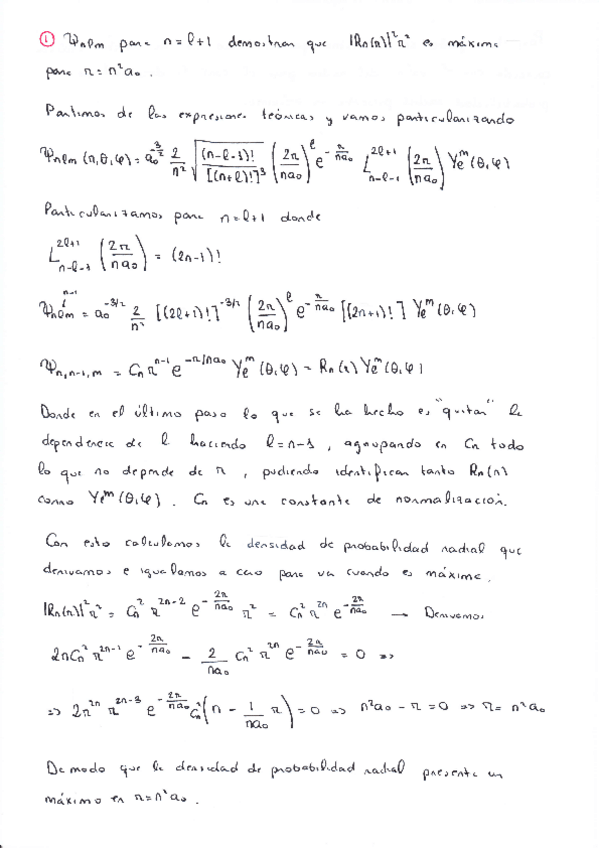 ① Ψnlm para n = l+1 demostrar que |Rn(r)|² r² es máximo
para r = n² a₀.
Partimos de las expresiones teóricas y vamos particularizando
Ψnlm (r,θ,φ) = a₀^(-3/2) 2/n² √((n-l-1)!/[(n+l)!]³) (2r/na₀)^l e^(-r/na₀) L_(n-l-1)^(2l+1) (2r/na₀) Ye^m(θ,φ)
Particularizamos para n = l+1 donde
L_(n-l-1)^(2l+1) (2r/na₀) = (2n-1)!
n-1
Ψnlm = a₀^(-3/2) 2/n² [(2l+1)!]^(-3/2) (2r/na₀)^l e^(-r/na₀) [(2n+1)!] Ye^m(θ,φ)
Ψn,n-1,m = Cn r^(n-1) e^(-r/na₀) Ye^m(θ,φ) = Rn(r) Ye^m(θ,φ)
Donde en el último paso lo que se ha hecho es "quitar" la
dependencia de l haciendo l = n-1, agrupando en Cn todo
lo que no depende de r, pudiendo identificar tanto Rn(r)
como Ye^m(θ,φ). Cn es una constante de normalización.
Con esto calculamos la densidad de probabilidad radial que
derivamos e igualamos a cero para ver cuando es máxima.
|Rn(r)|² r² = Cn² r^(2n-2) e^(-2r/na₀) r² = Cn² r^(2n) e^(-2r/na₀) → Derivamos
2nCn² r^(2n-1) e^(-2r/na₀) - 2/na₀ Cn² r^(2n) e^(-2r/na₀) = 0 =>
=> 2r^(2n) r^(2n-1) e^(-2r/na₀) Cn² (n - 1/na₀ r) = 0 => n²a₀ - r = 0 => r = n²a₀
De modo que la densidad de probabilidad radial presenta un
máximo en r = n²a₀.